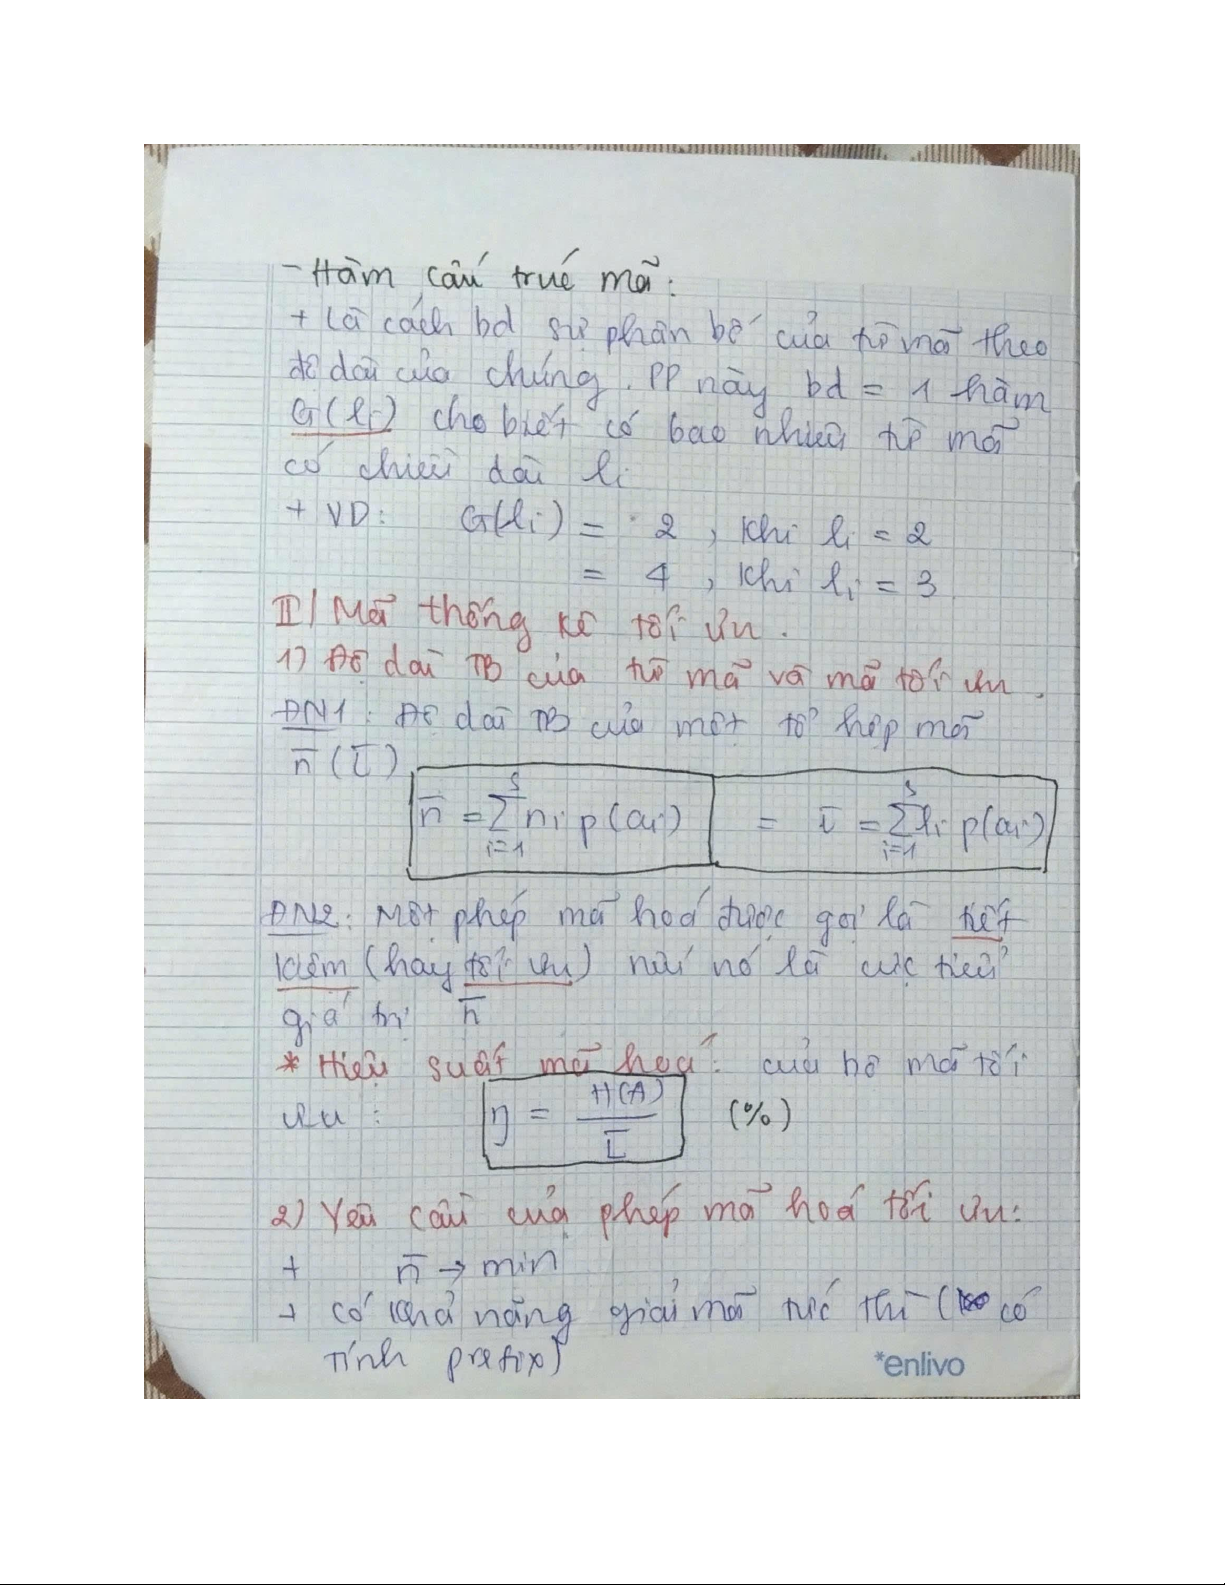 - Hàm cấu trúc mã:
+ Là cách bd sự phân bố của từ mã theo
độ dài của chúng. PP này bd = 1 hàm
G(li) cho biết có bao nhiêu từ mã
có chiều dài li
+ VD: G(li) = 2, khi li = 2
= 4, khi li = 3
II/ Mã thống kê tối ưu.
1) Độ dài TB của từ mã và mã tối ưu.
ĐN1: Độ dài TB của một tổ hợp mã
n̅ (l̅)
n̅ = ∑ᵢ₌₁ˢ ni p(ai) = l̅ = ∑ᵢ₌₁ˢ li p(ai)
ĐN2: Một phép mã hoá được gọi là tiết
kiệm (hay tối ưu) nếu nó là cực tiểu
giá trị n̅
* Hiệu suất mã hoá: của bộ mã tối
ưu: η = H(A) / l̅ (%)
2) Yêu cầu của phép mã hoá tối ưu:
+ n̅ → min
+ có khả năng giải mã tức thì ( có
tính prefix)
*enlivo